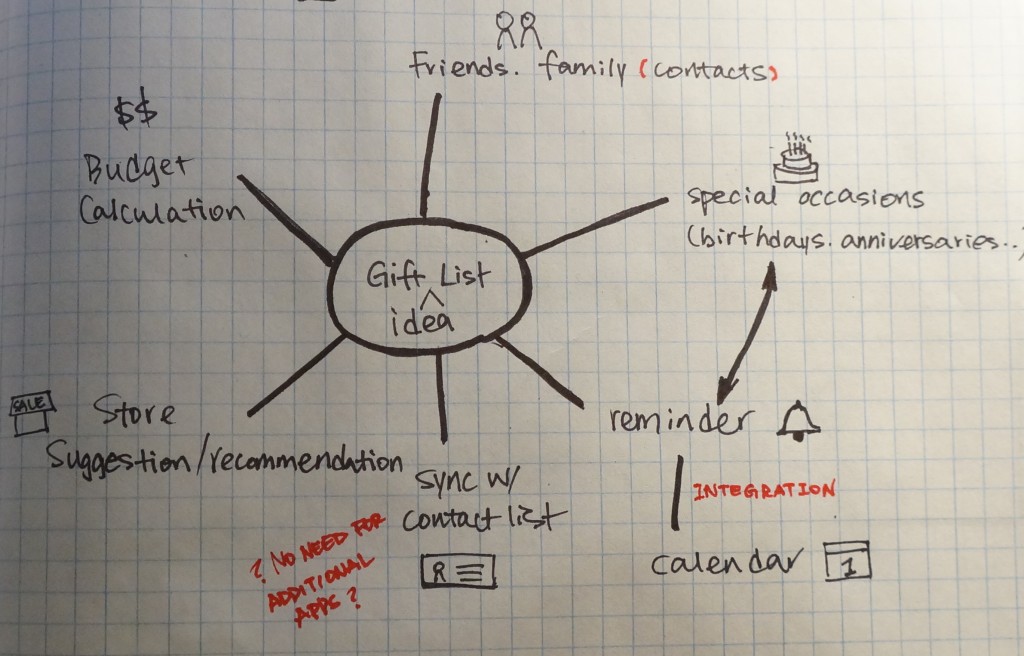 Friends. family (contacts)
$$
Budget
Calculation
special occasions
(birthdays. anniversaries..)
Gift List
idea
SALE
Store
Suggestion/recommendation
reminder
sync w/
contact list
INTEGRATION
? NO NEED FOR
ADDITIONAL
APPS ?
R
calendar
1